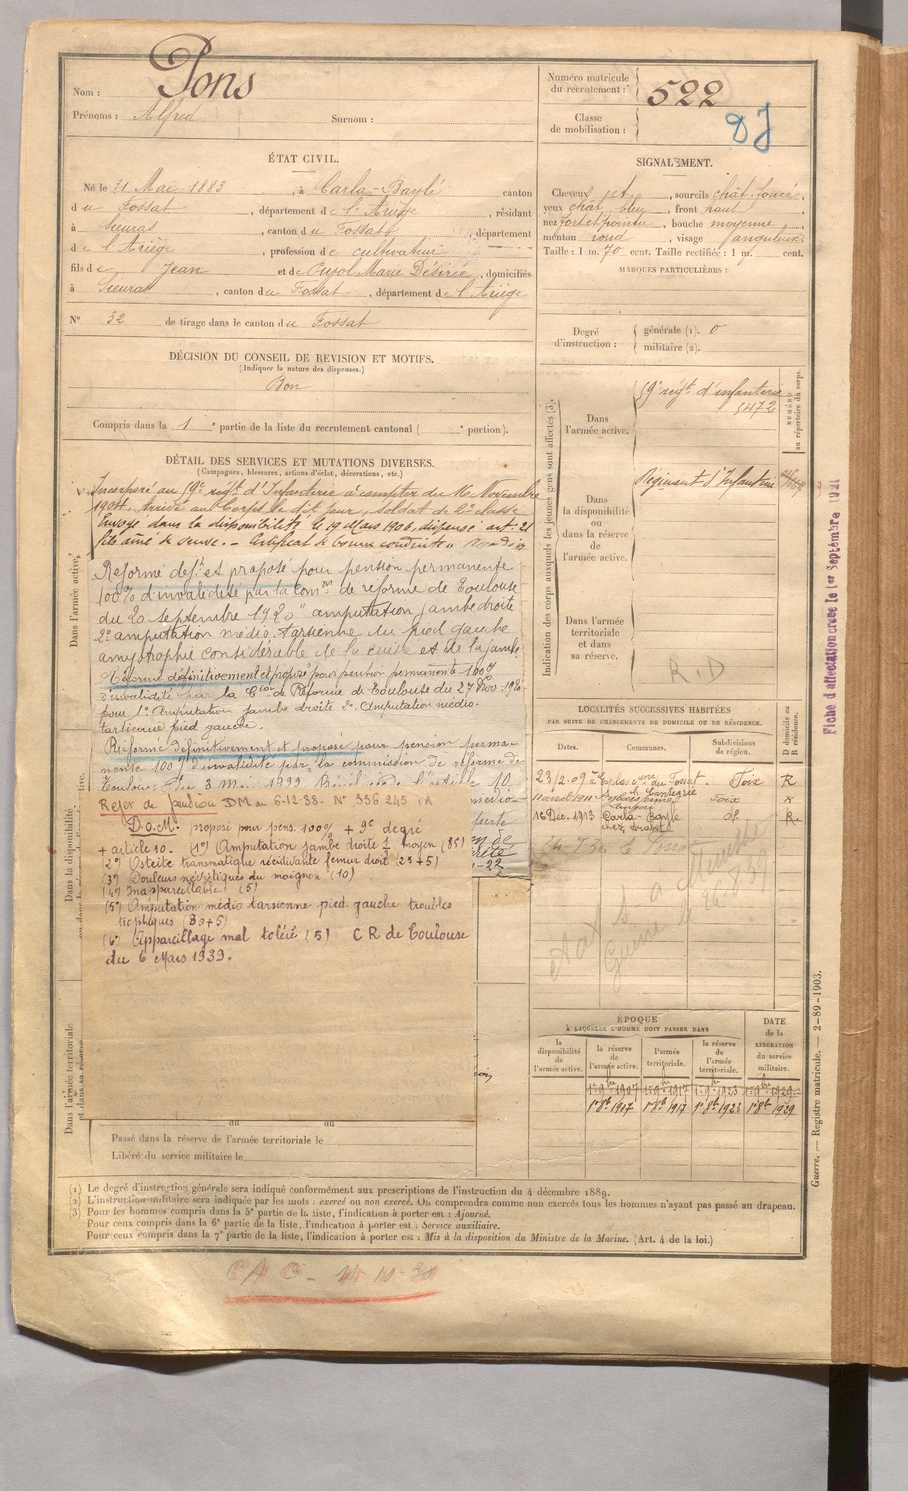 Nom : Pons
Prénoms : Alfred Surnom :
Numéro matricule du recrutement : 522
Classe de mobilisation :
ÉTAT CIVIL.
Né le 31 Mai 1883, à Carla-Bayle canton
du Fossat, département de l'Ariège, résidant
à Sieuras, canton du Fossat, département
de l'Ariège, profession de cultivateur
fils de Jean et de Pujol Marie Désirée, domiciliés
à Sieuras, canton du Fossat, département de l'Ariège
N° 32 de tirage dans le canton du Fossat
SIGNALEMENT.
Cheveux , sourcils chât. foncé,
yeux chât bleu, front haut,
nez fort et pointu, bouche moyenne,
menton rond, visage anguleux.
Taille : 1 m. 70 cent. Taille rectifiée : 1 m. cent.
MARQUES PARTICULIÈRES :
Degré d'instruction : générale (1). 0
militaire (2).
DÉCISION DU CONSEIL DE REVISION ET MOTIFS.
(Indiquer la nature des dispenses.)
Bon
Compris dans la 1e partie de la liste du recrutement cantonal ( e portion).
DÉTAIL DES SERVICES ET MUTATIONS DIVERSES.
(Campagnes, blessures, actions d'éclat, décorations, etc.)
Incorporé au 59e régt d'Infanterie à compter du 16 Novembre
1904. Arrivé au Corps le dit jour, soldat de 2e classe
Envoyé dans la disponibilité le 19 Mars 1906, dispensé art: 21
fils aîné de veuve. - Certificat de bonne conduite
Réformé deft et proposé pour pension permanente
100% d'invalidité par la Comon de réforme de Toulouse
du 20 septembre 1920 amputation jambe droite
2° amputation médio-tarsienne du pied gauche
amyotrophie considérable de la cuisse et de la jambe
Réformé définitivement et proposé pour pension permanente 100%
d'invalidité par la Cion de Réforme de Toulouse du 27
pour 1° Amputation jambe droite 2° Amputation médio-
tarsienne pied gauche.
Réformé définitivement et proposé pour pension perma-
nente 100% d'invalidité par la commission de réforme de
Toulouse du 3 article 10
Rejet de pension DM du 6-12-38. N° 356 245
D.O.M. proposé pour pens. 100% + 9e degré
+ article 10. (1°) Amputation jambe droite moyen (85)
(2°) Ostéite traumatique récidivante fémur droit (25+5)
(3°) Douleurs névritiques du moignon (10)
(4°) Inappareillable (5)
(5°) Amputation médio tarsienne pied gauche troubles
trophiques (30+5)
(6°) Appareillage mal toléré (5) CR de Toulouse
du 6 Mars 1939.
Passé dans la réserve de l'armée territoriale le
Libéré du service militaire le
Dans l'armée active.
Dans la disponibilité
Dans l'armée territoriale et dans sa réserve
Indication des corps auxquels les jeunes gens sont affectés (3).
NUMÉRO au répertoire du corps.
Dans l'armée active. 59e régt d'infanterie 5472
Dans la disponibilité ou dans la réserve de l'armée active. Régiment d'Infanterie
Dans l'armée territoriale et dans sa réserve.
R.D
LOCALITÉS SUCCESSIVES HABITÉES
PAR SUITE DE CHANGEMENTS DE DOMICILE OU DE RÉSIDENCE.
Dates. Communes. Subdivisions de région. D domicile ou R résidence.
23/2.09 Fossat. Foix R
11 août 1911 Foix
16 Déc. 1913 Carla-Bayle R
26.8.39
ÉPOQUE
À LAQUELLE L'HOMME DOIT PASSER DANS
la disponibilité de l'armée active.
la réserve de l'armée active.
l'armée territoriale.
la réserve de l'armée territoriale.
DATE de la LIBÉRATION du service militaire.
1r 9bre 1907 1r 9bre 1917 1r 9bre 1923 1r 9bre 1929
1r 8bre 1907 1r 8bre 1917 1r 8bre 1923 1r 8bre 1929
Fiche d'affectation créée le 1er Septembre 1921
Guerre. — Registre matricule. — 2-89-1903.
(1) Le degré d'instruction générale sera indiqué conformément aux prescriptions de l'instruction du 4 décembre 1889.
(2) L'instruction militaire sera indiquée par les mots : exercé ou non exercé. On comprendra comme non exercés tous les hommes n'ayant pas passé au drapeau.
(3) Pour les hommes compris dans la 5e partie de la liste, l'indication à porter est : Ajourné.
Pour ceux compris dans la 6e partie de la liste, l'indication à porter est : Service auxiliaire.
Pour ceux compris dans la 7e partie de la liste, l'indication à porter est : Mis à la disposition du Ministre de la Marine. (Art. 4 de la loi.)